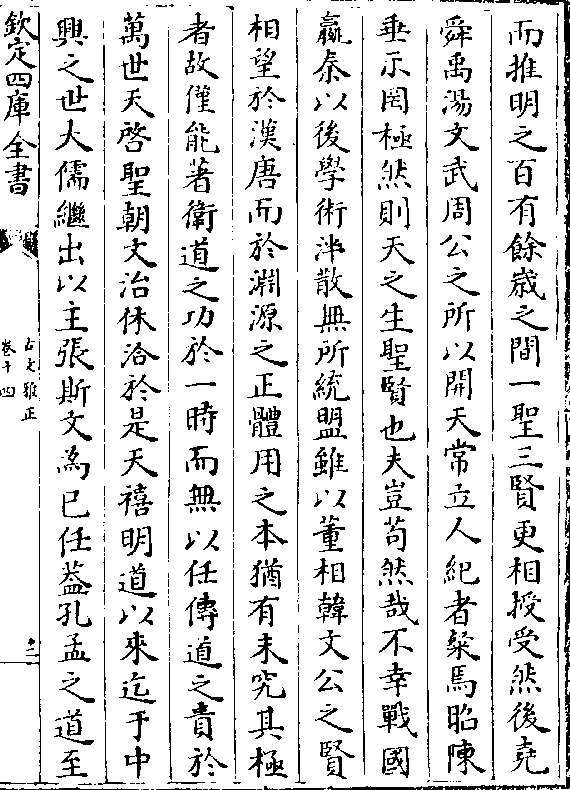 而推明之百有餘歲之間一聖三賢更相授受然後堯
舜禹湯文武周公之所以開天常立人紀者粲焉昭陳
垂示罔極然則天之生聖賢也夫豈苟然哉不幸戰國
嬴秦以後學術泮散無所統盟雖以董相韓文公之賢
相望於漢唐而於淵源之正體用之本猶有未究其極
者故僅能著衛道之功於一時而無以任傳道之責於
萬世天啓聖朝文治休洽於是天禧明道以來迄于中
興之世大儒繼出以主張斯文為已任葢孔孟之道至
欽定四庫全書
古文雅正
卷十四